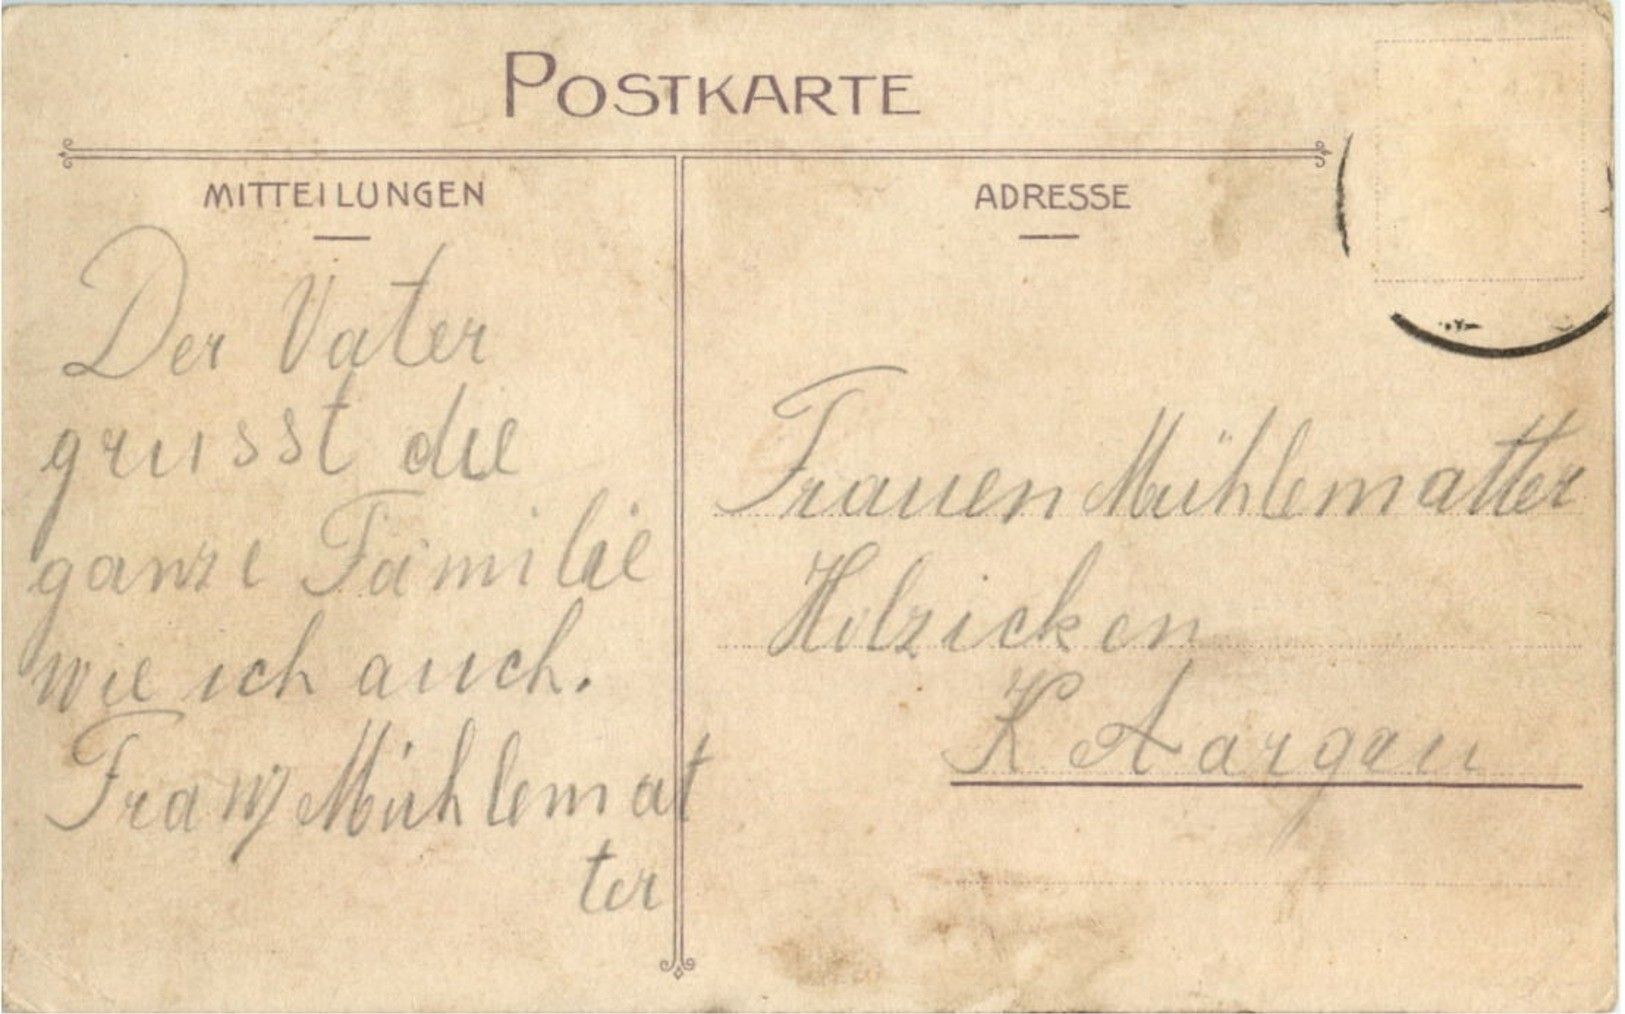 POSTKARTE
MITTEILUNGEN
Der Vater
grusst die
ganze Familie
wie ich auch.
Franz Mühlemat
ter
ADRESSE
Frauen Mühlematter
Holzicken
K Aargau